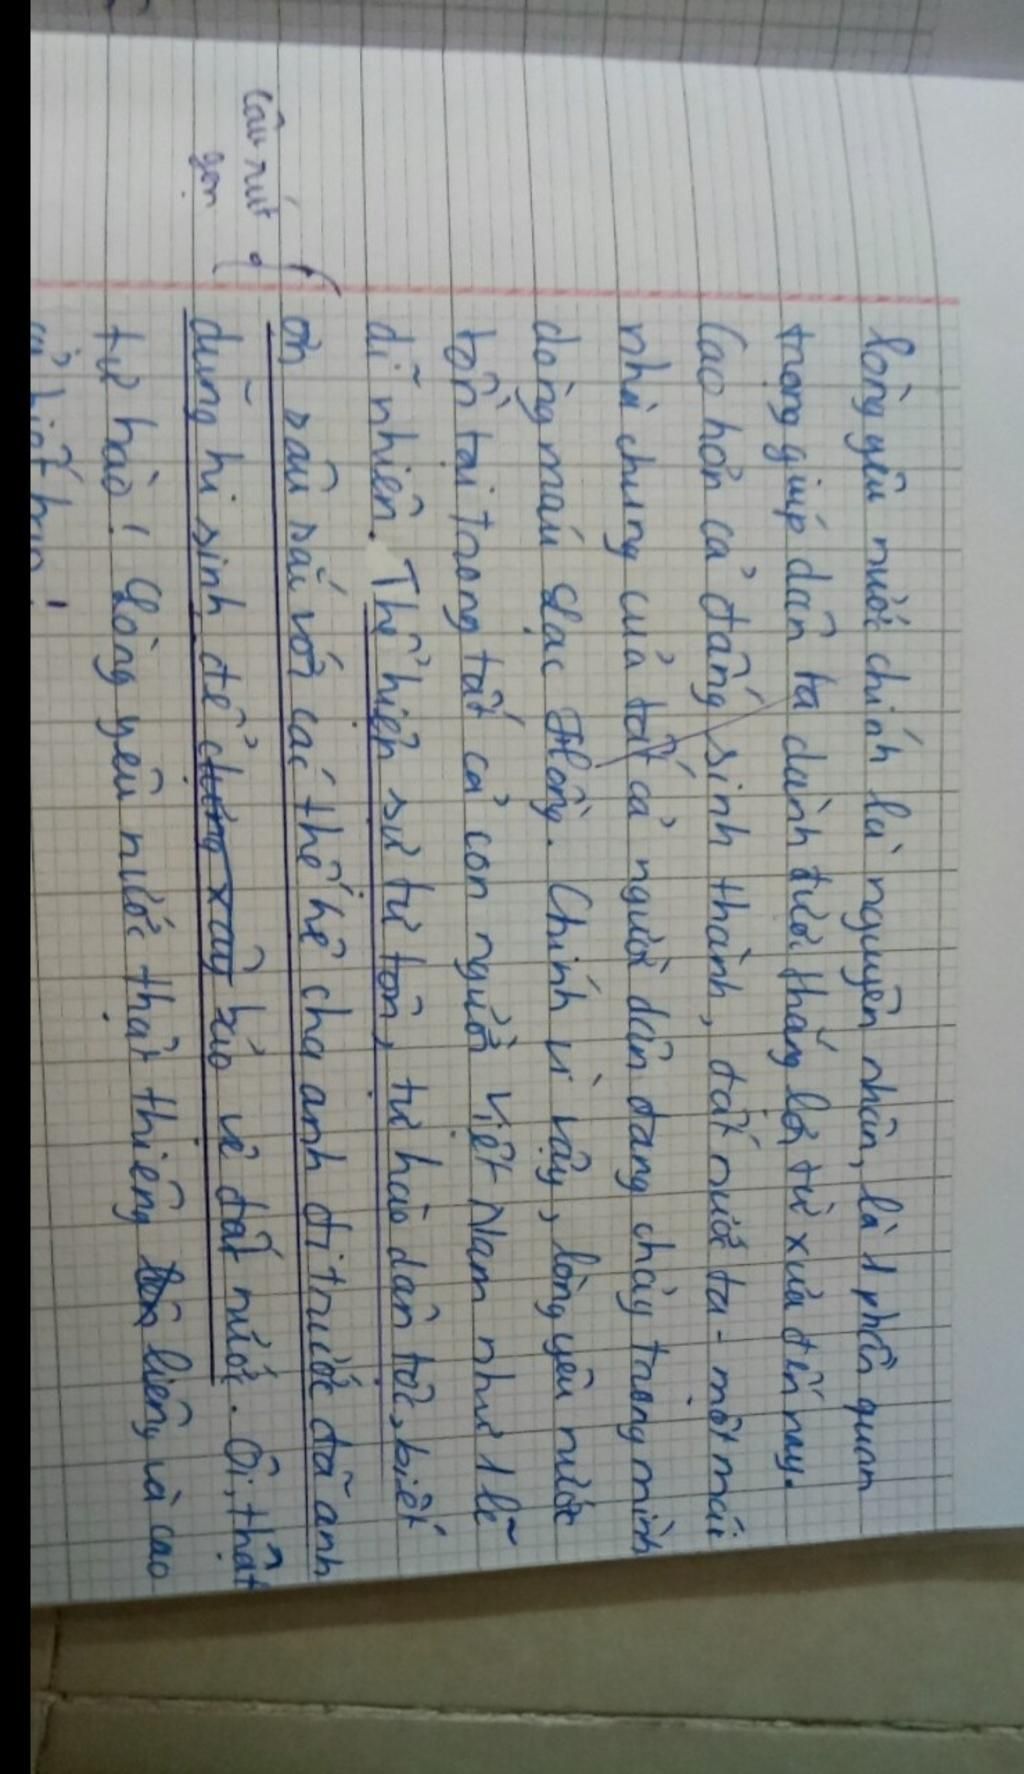 lòng yêu nước chính là nguyên nhân, là 1 phần quan
trọng giúp dân ta dành được thắng lợi từ xưa đến nay.
Cao hơn cả đấng sinh thành, đất nước ta - một mái
nhà chung của tất cả người dân đang chảy trong mình
dòng máu Lạc Hồng. Chính vì vậy, lòng yêu nước
tồn tại trong tất cả con người Việt Nam như 1 lẽ
dĩ nhiên. Thể hiện sự tự tôn, tự hào dân tộc, biết
câu rút gọn
ơn sâu sắc với các thế hệ cha anh đi trước đã anh
dũng hi sinh để bảo vệ đất nước. Ôi, thật
tự hào! Lòng yêu nước thật thiêng liêng và cao